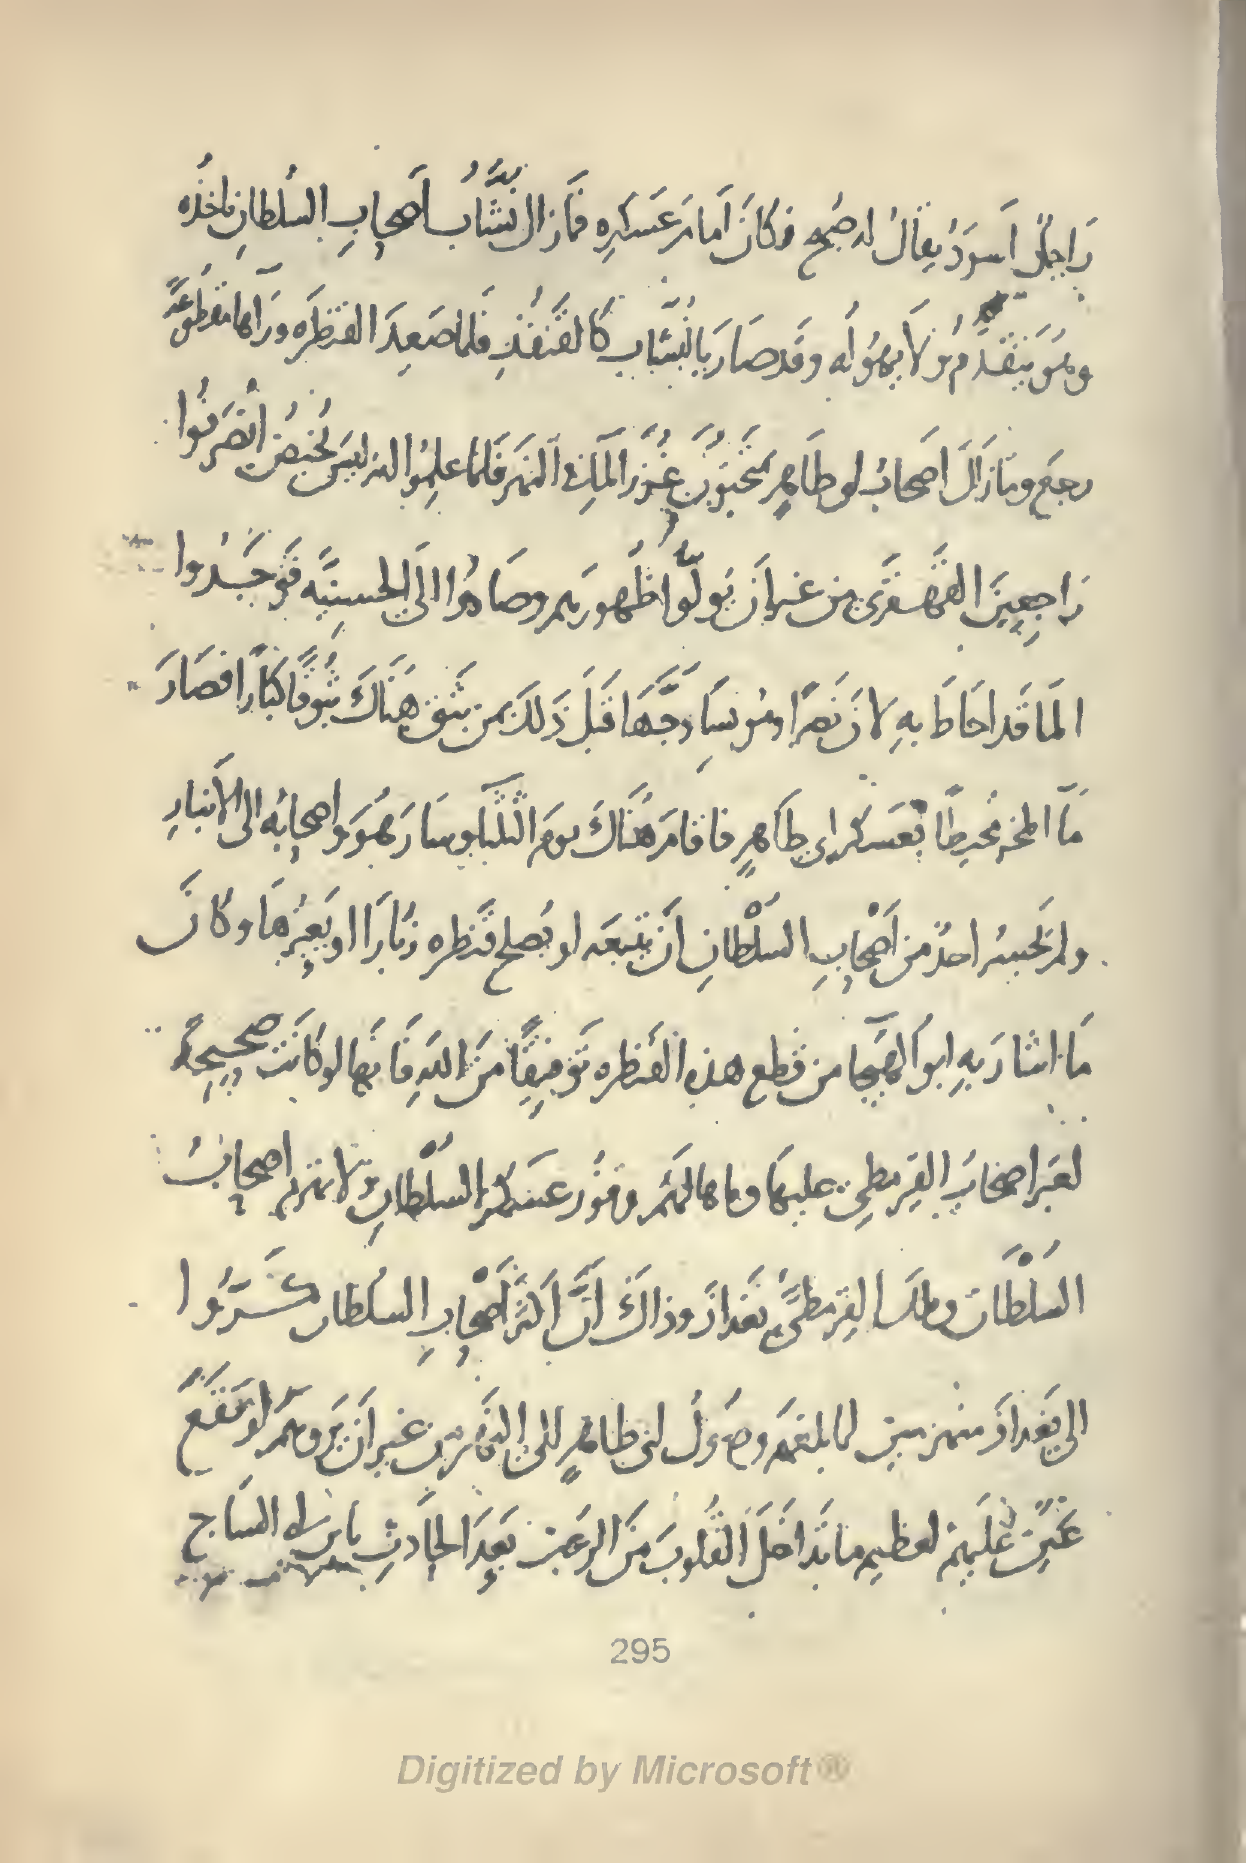 راجلٌ أسودُ يقالُ له صُبح فكانَ أمامَ عَسكرِه فما زال نُشَّابُ أصحابِ السُلطانِ ياخذُه
وهُوَ يتقدَّم ولا يهُولُه وقَد صارَ بالنُّشّابِ كالقُنفُذِ فلمّا صَعِدَ القنطَره ورآها مقطوعَةً
رجع وما زالَ اصحابُ ابو طاهرٍ يختبرونَ غورَ الماءِ في النهَر فلمّا علِمُوا انه ليسَ بمُخِيضٍ انصَرفُوا
راجِعِينَ القهقَرَى من غيرِ أن يُولّوا ظُهورهم وصاروا الى الحسينيَّه فوَجَدُوا
الما قد احاطَ بهِ لانّ نصرًا ومونسًا وجَّها قبلَ ذلكَ بمن بثقَ هنَاكَ بثُوقًا كبارًا فصَارَ
ما المخر محيطًا بعسكرِ ابي طاهِرٍ فاقامَ هنَاكَ يومَ الثلثا وسارَ هُوَ واصحابُه الى الانبارِ
ولم يجسر احدٌ من أصحابِ السُلْطانِ أن يتبعَه او يُصلح قنطره زبارا او يَعبرها وكانَ
ما اشارَ بهِ ابو الهيجا من قطع هذه القنطره توفيقًا منَ اللهِ فانّها لو كانت صحيحةً
لعَبر اصحابُ القرمطِي عليهَا وما هالهم وفُور عسكر السُلْطانِ ولانهزم اصحابُ
السُلْطانِ وملكَ القِرمطيُّ بغداذَ وذاكَ أنَّ أكثرَ أصْحابِ السُلطانِ تشرّدُوا
الى بغداذَ منهزمين لمّا بلغهم وصُولُ ابي طاهرٍ الى القنطره من غير أن يروهم لو تقع
عَينٌ عليهم لعظيمِ ما تداخَلَ القُلوبَ منَ الرعب بعدَ الحادثِ بابن ابي السَاج
295
Digitized by Microsoft®